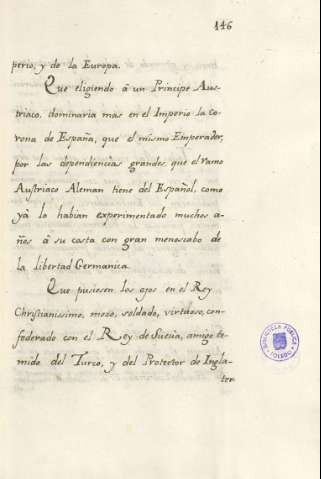 146
perio, y de la Europa.
Que eligiendo â un Principe Aus-
triaco, dominaria mas en el Imperio la Co-
rona de España, que el mismo Emperador,
por las dependiencias grandes, que el ramo
Austriaco Aleman tiene del Español, como
yà lo habian experimentado muchos a-
ños â su costa con gran menoscabo de
la libertad Germanica.
Que pusiesen los ojos en el Rey
Christianissimo, mozo, soldado, virtuoso, con-
federado con el Rey de Suecia, amigo te-
mido del Turco, y del Protector de Ingla-
ter
BIBLIOTECA PUBLICA
TOLEDO